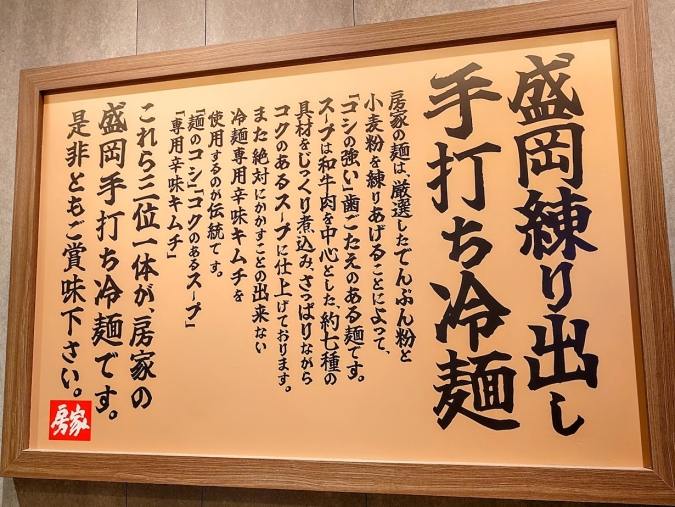 盛岡練り出し
手打ち冷麺
房家の麺は、厳選したでんぷん粉と
小麦粉を練りあげることによって、
「コシの強い」歯ごたえのある麺です。
スープは和牛肉を中心とした、約七種の
具材をじっくり煮込み、さっぱりながら
コクのあるスープに仕上げております。
また絶対にかかすことの出来ない
冷麺専用辛味キムチを
使用するのが伝統です。
「麺のコシ」「コクのあるスープ」
「専用辛味キムチ」
これら三位一体が、房家の
盛岡手打ち冷麺です。
是非ともご賞味下さい。
房家